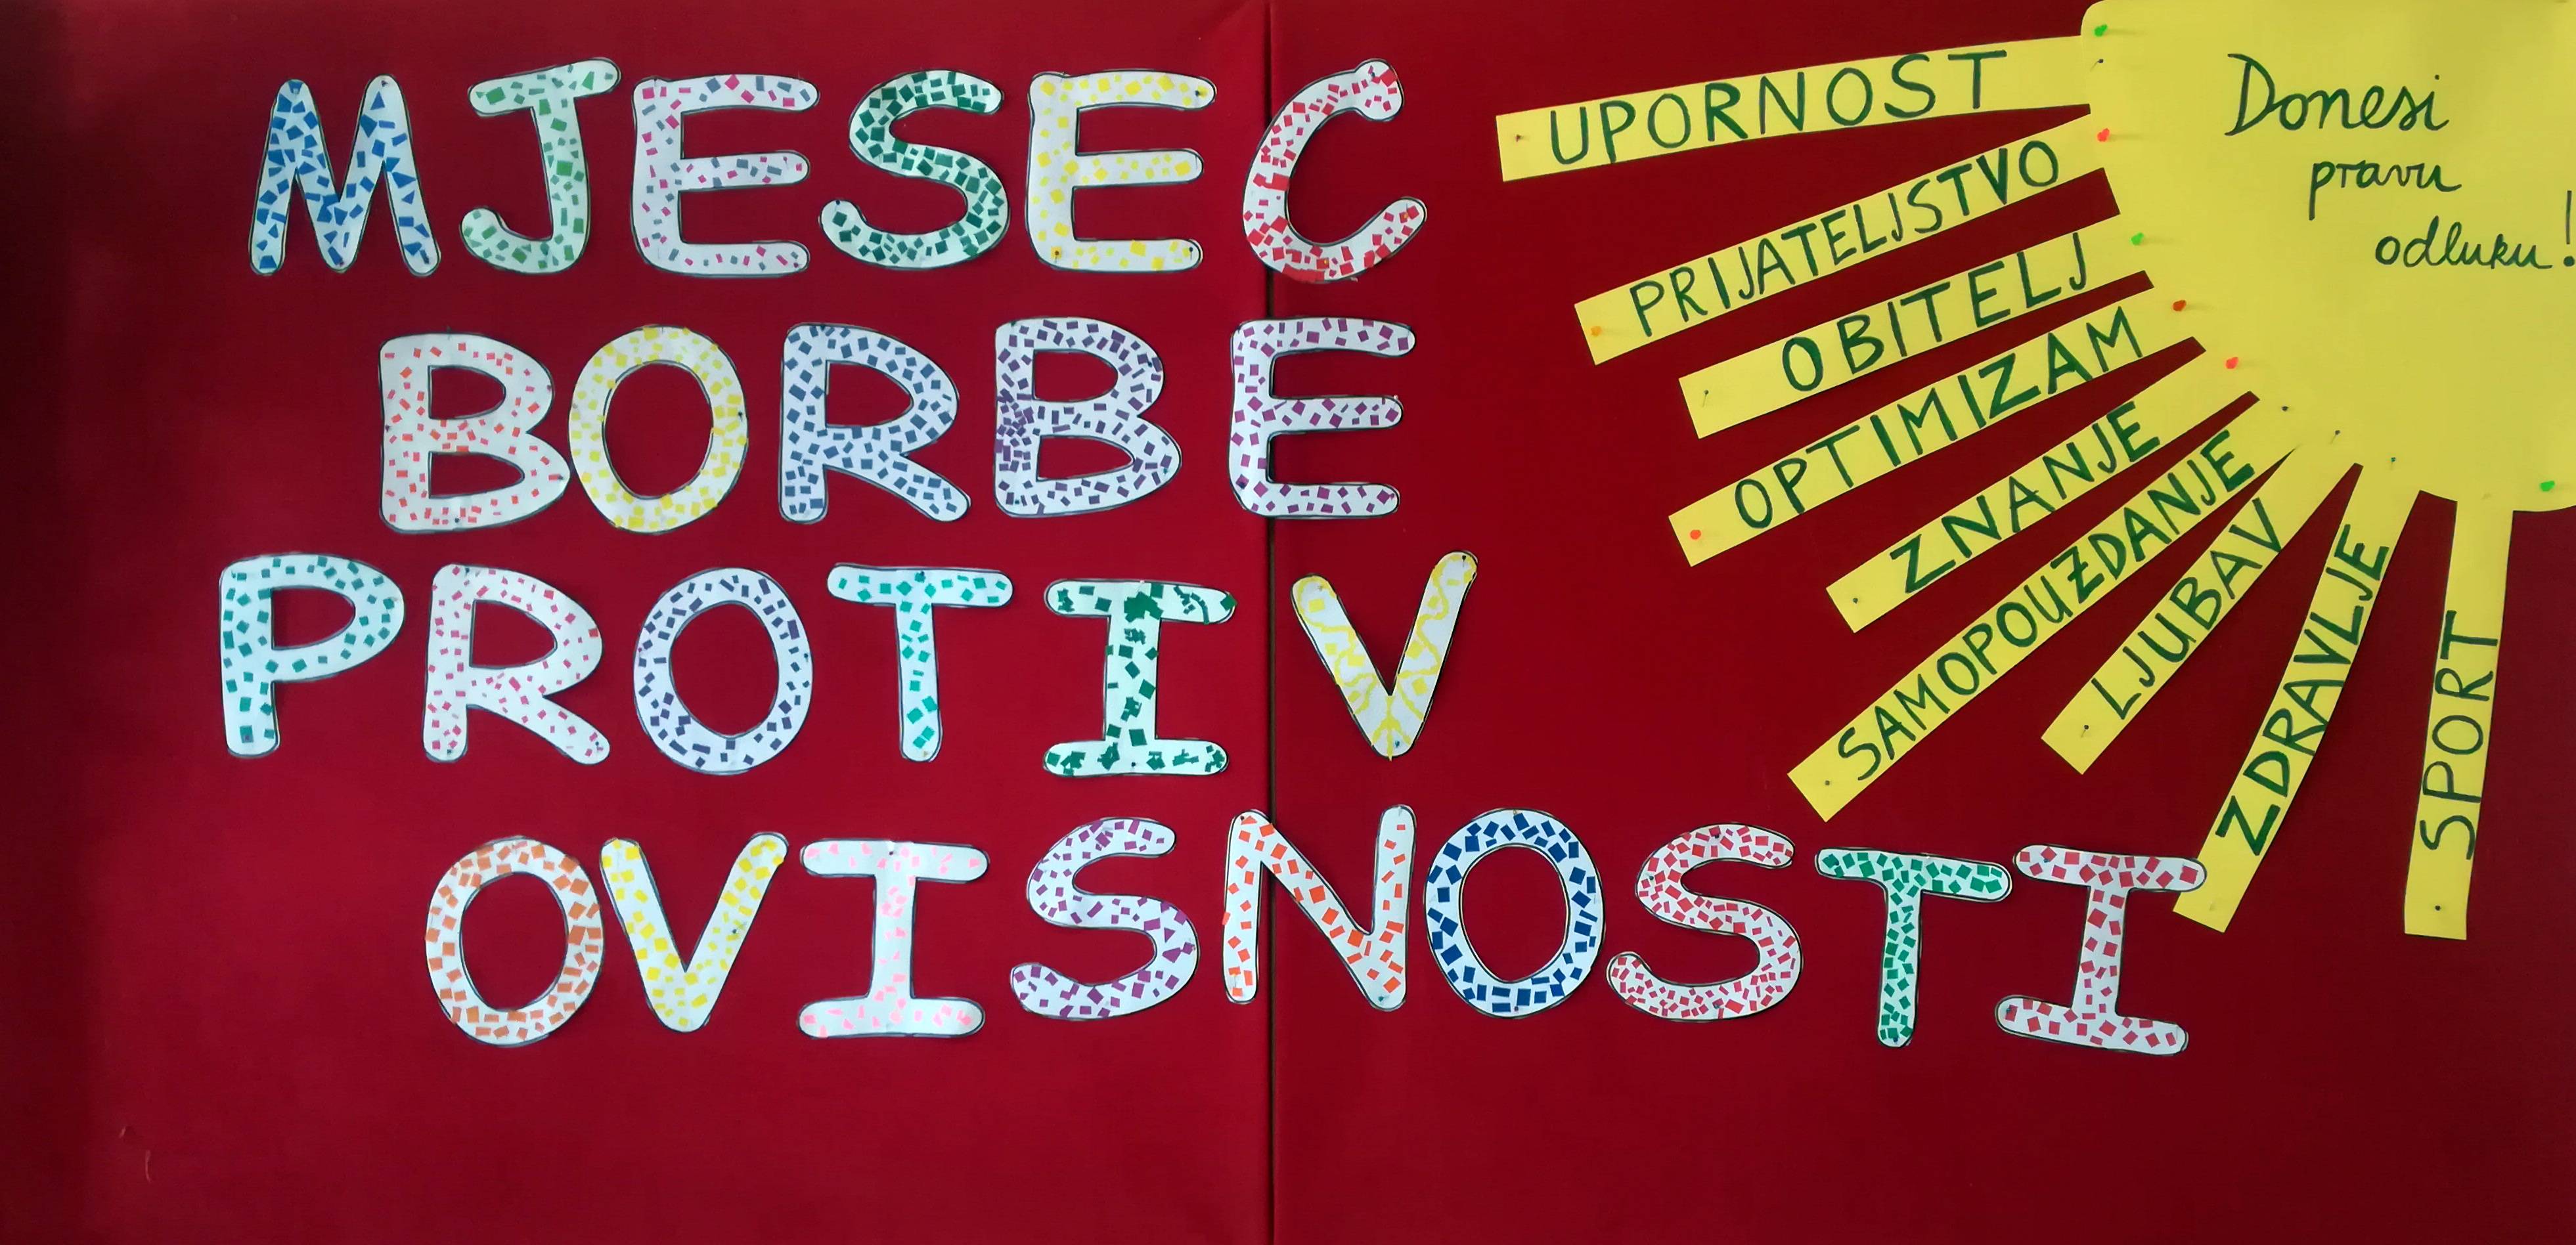 MJESEC
BORBE
PROTIV
OVISNOSTI
Donesi
pravu
odluku!
UPORNOST
PRIJATELJSTVO
OBITELJ
OPTIMIZAM
ZNANJE
SAMOPOUZDANJE
LJUBAV
ZDRAVLJE
SPORT